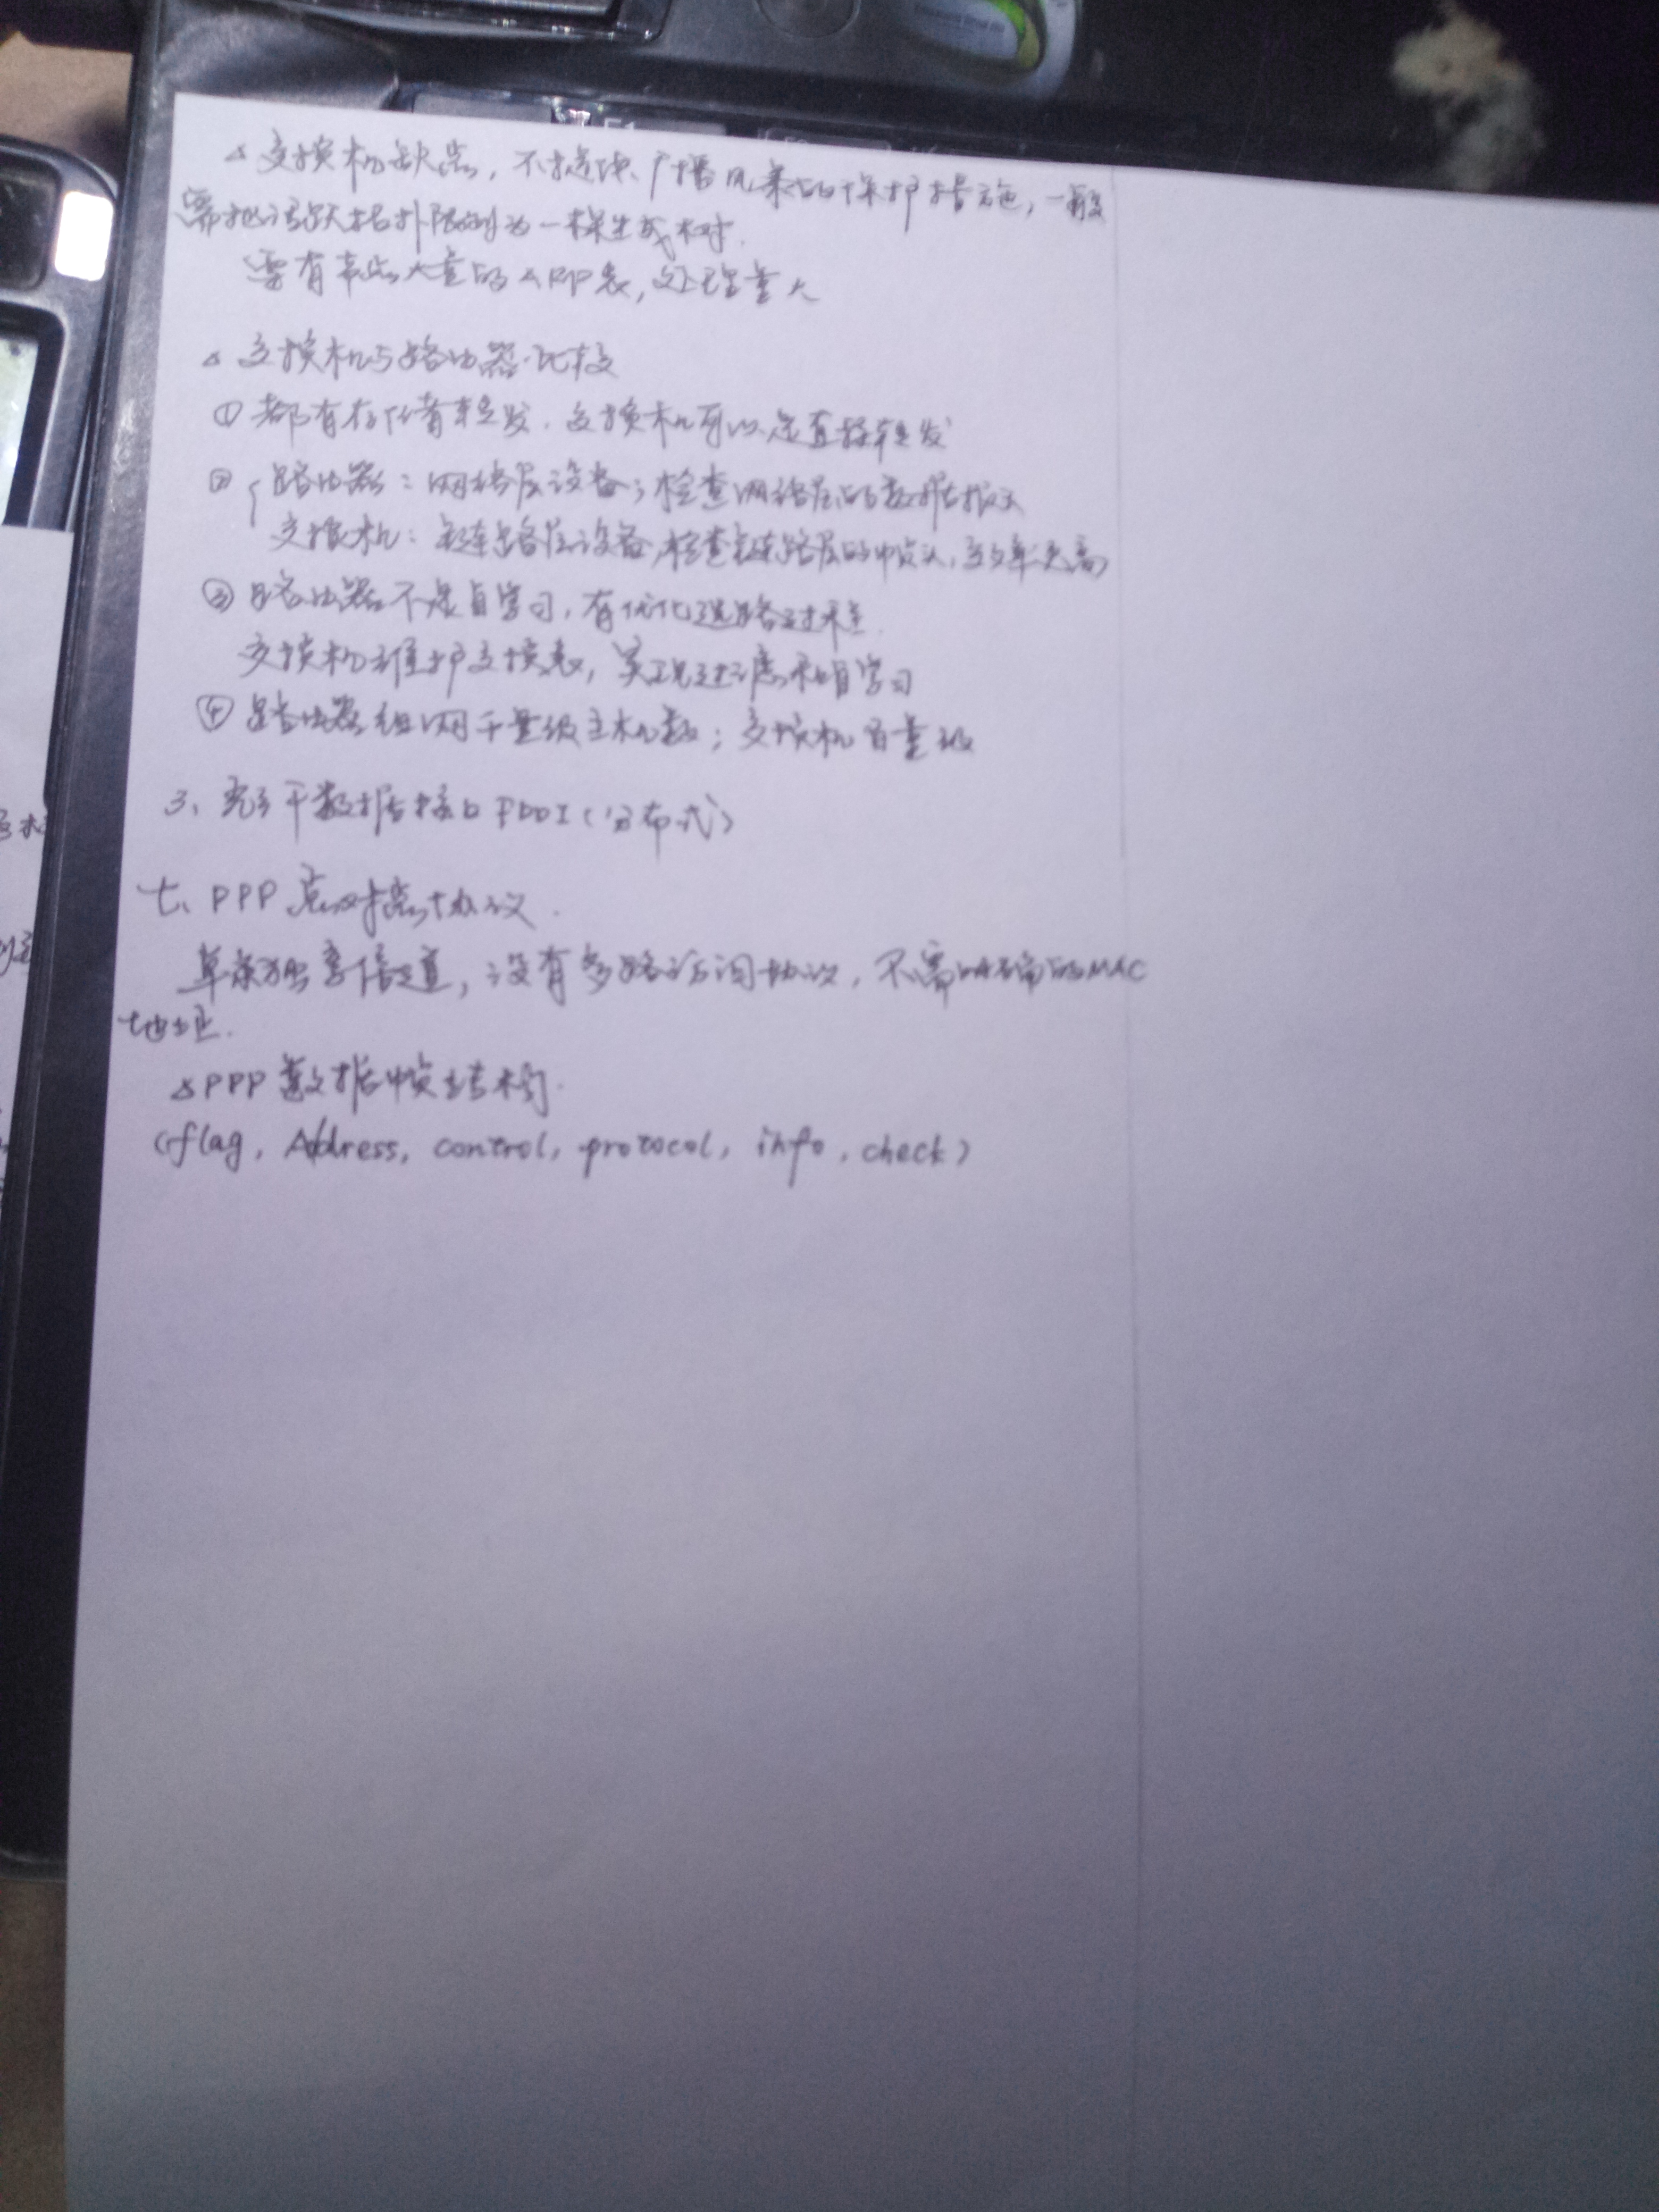 △ 交换机缺点，不提供广播风暴的保护措施，一般
需把活跃拓扑限制为一棵生成树.
要有节点大量的ARP表，处理量大
△ 交换机与路由器比较
① 都有存储转发. 交换机可以是直接转发
② 路由器：网络层设备；检查网络层的数据报头
交换机：链路层设备，检查链路层的帧头，效率更高
③ 路由器不是自学习，有优化选路过程.
交换机维护交换表，实现过滤和自学习
④ 路由器组网千量级主机数；交换机百量级
3、光纤数据接口FDDI（分布式）
七、PPP 点对点协议.
单点独享信道，没有多路访问协议，不需明确的MAC
地址.
△PPP 数据帧结构.
(flag, Address, control, protocol, info, check)